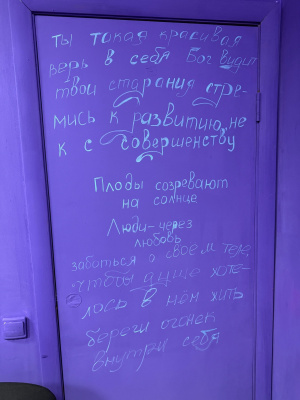 ты такая красивая
верь в себя Бог видит
твои старания стре-
мись к развитию, не
к с совершенству
Плоды созревают
на солнце
Люди - через
любовь
заботься о своём теле,
чтобы душе хоте-
лось в нём жить
береги огонек
внутри себя